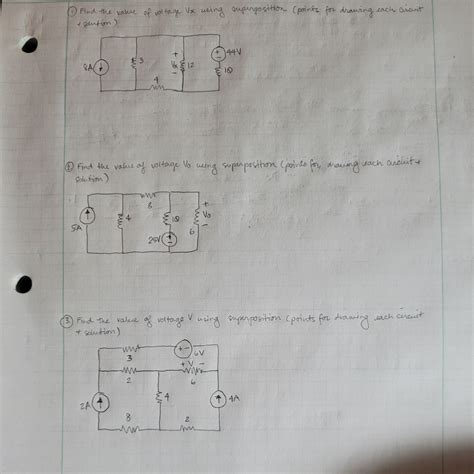 ① Find the value of voltage Vx using superposition (points for drawing each circuit
+ solution)
2A
3
+
Vx
-
12
+
-
44V
1Ω
4
② Find the value of voltage Vo using superposition (points for drawing each circuit +
solution)
5A
4
8
1Ω
25V
+
Vo
-
6
③ Find the value of voltage V using superposition (points for drawing each circuit
+ solution)
3
+ -
6V
2
+ V -
6
2A
4
4A
8
2